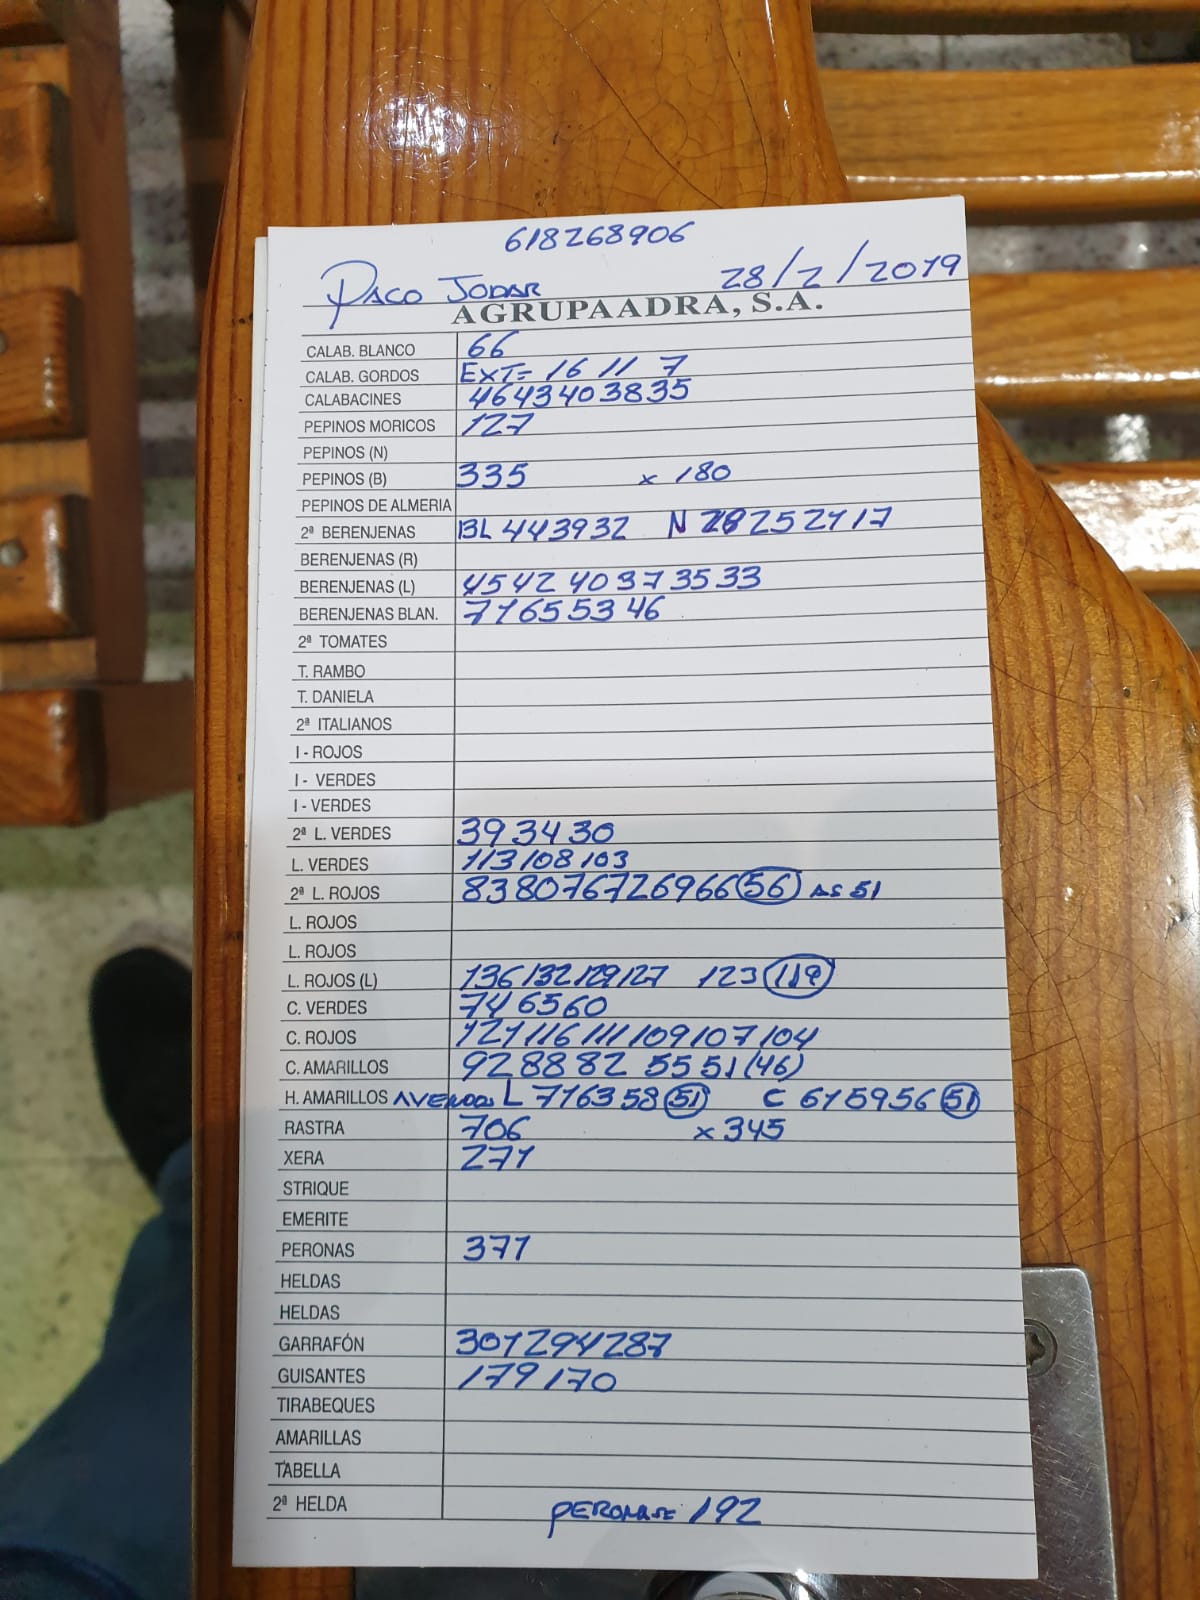 618268906
PACO JODAR 28/2/2019
AGRUPAADRA, S.A.
CALAB. BLANCO 66
CALAB. GORDOS EXT= 16 11 7
CALABACINES 4643403835
PEPINOS MORICOS 127
PEPINOS (N)
PEPINOS (B) 335 x 180
PEPINOS DE ALMERIA
2ª BERENJENAS BL 443932 N 28252117
BERENJENAS (R)
BERENJENAS (L) 4542 40373533
BERENJENAS BLAN. 71655346
2ª TOMATES
T. RAMBO
T. DANIELA
2ª ITALIANOS
I - ROJOS
I - VERDES
I - VERDES
2ª L. VERDES 393430
L. VERDES 113108103
2ª L. ROJOS 838076726966 56 AS 51
L. ROJOS
L. ROJOS
L. ROJOS (L) 136132129127 123 119
C. VERDES 746560
C. ROJOS 121116111109107104
C. AMARILLOS 928882 5551(46)
H. AMARILLOS L 716358 51 C 615956 51
RASTRA 706 x 345
XERA 271
STRIQUE
EMERITE
PERONAS 371
HELDAS
HELDAS
GARRAFÓN 301294287
GUISANTES 179170
TIRABEQUES
AMARILLAS
TABELLA
2ª HELDA 192